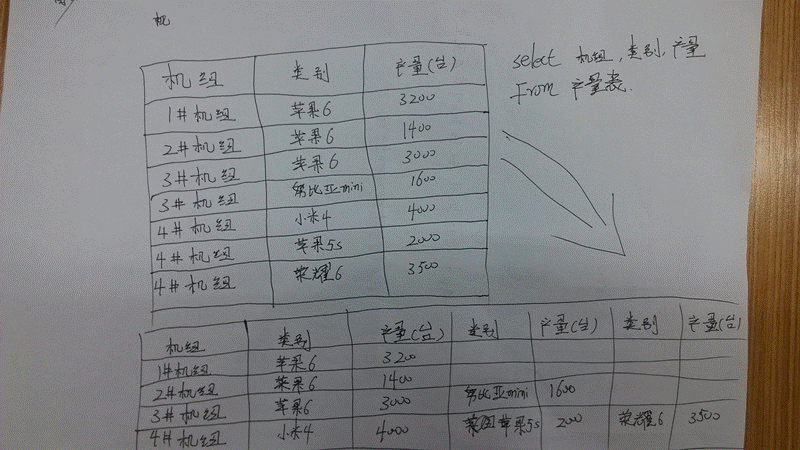 机
机组 类别 产量(台)
1#机组 苹果6 3200
2#机组 苹果6 1400
3#机组 苹果6 3000
3#机组 努比亚mini 1600
4#机组 小米4 4000
4#机组 苹果5s 2000
4#机组 荣耀6 3500
select 机组,类别,产量
From 产量表.
机组 类别 产量(台) 类别 产量(台) 类别 产量(台)
1#机组 苹果6 3200
2#机组 苹果6 1400
3#机组 苹果6 3000 努比亚mini 1600
4#机组 小米4 4000 苹果5s 2000 荣耀6 3500